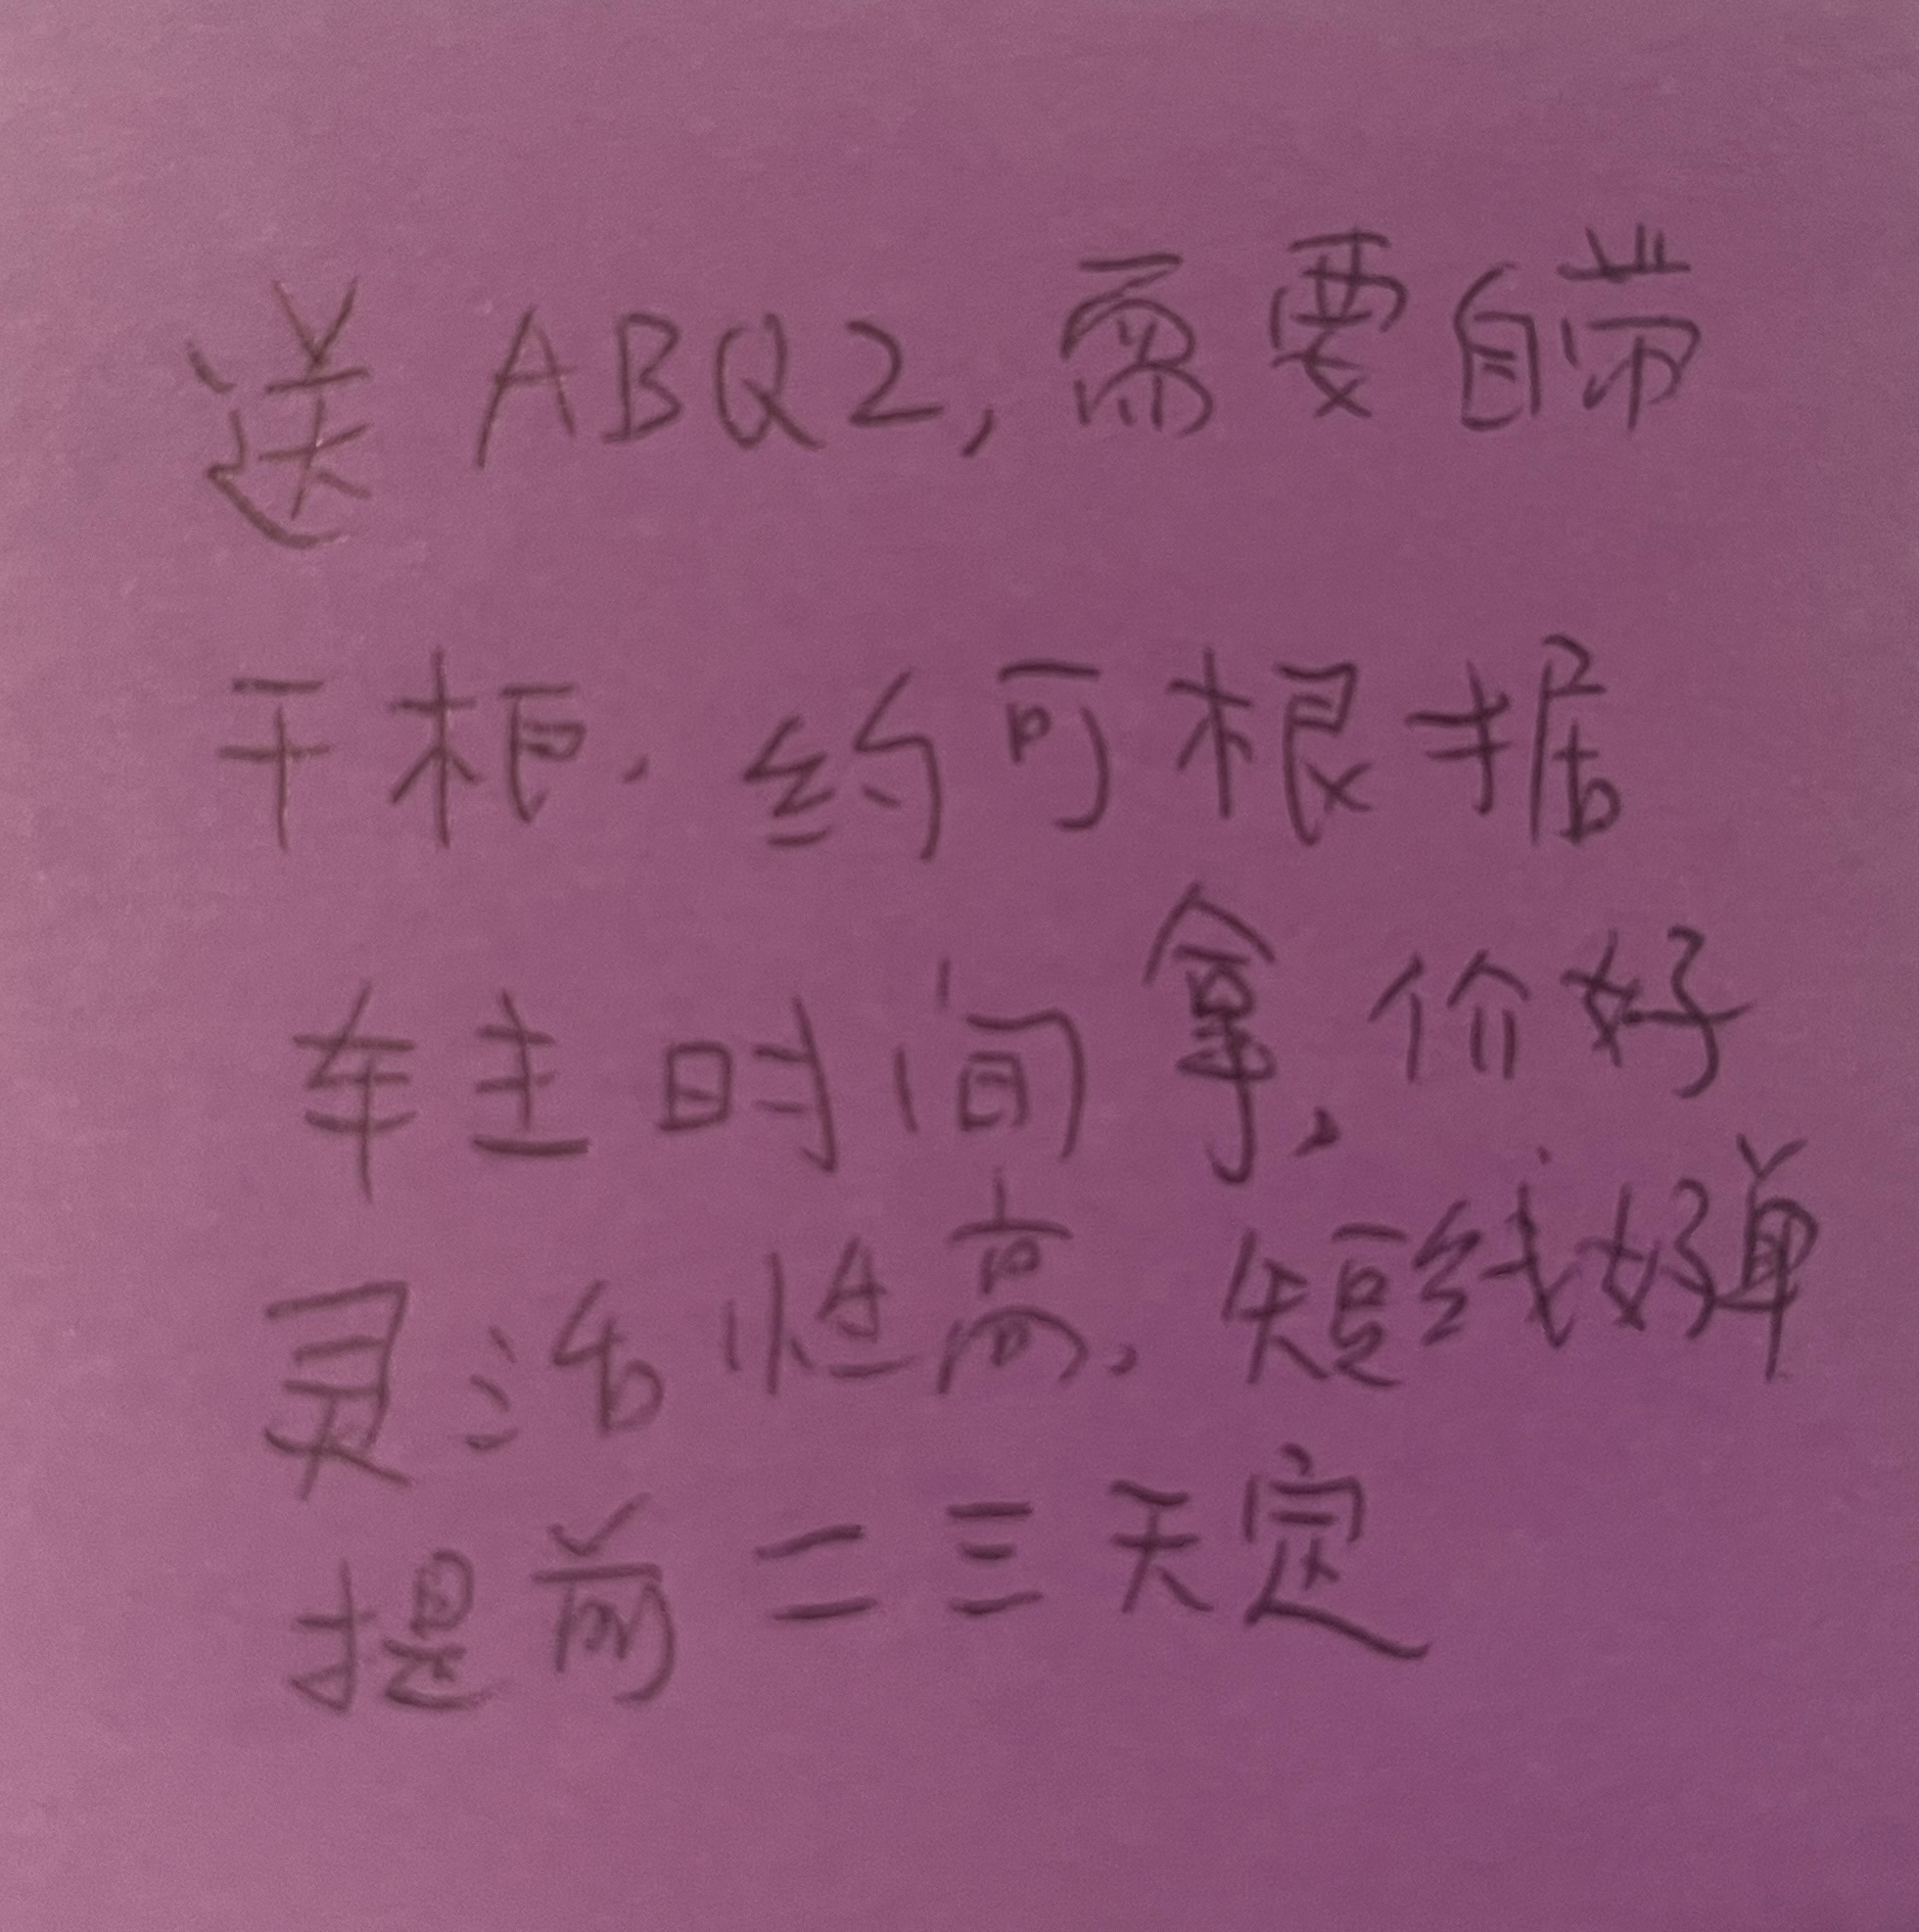 送 ABQ2, 需要自带
干柜. 约可根据
车主时间拿, 价好
灵活性高, 短线好单
提前二三天定